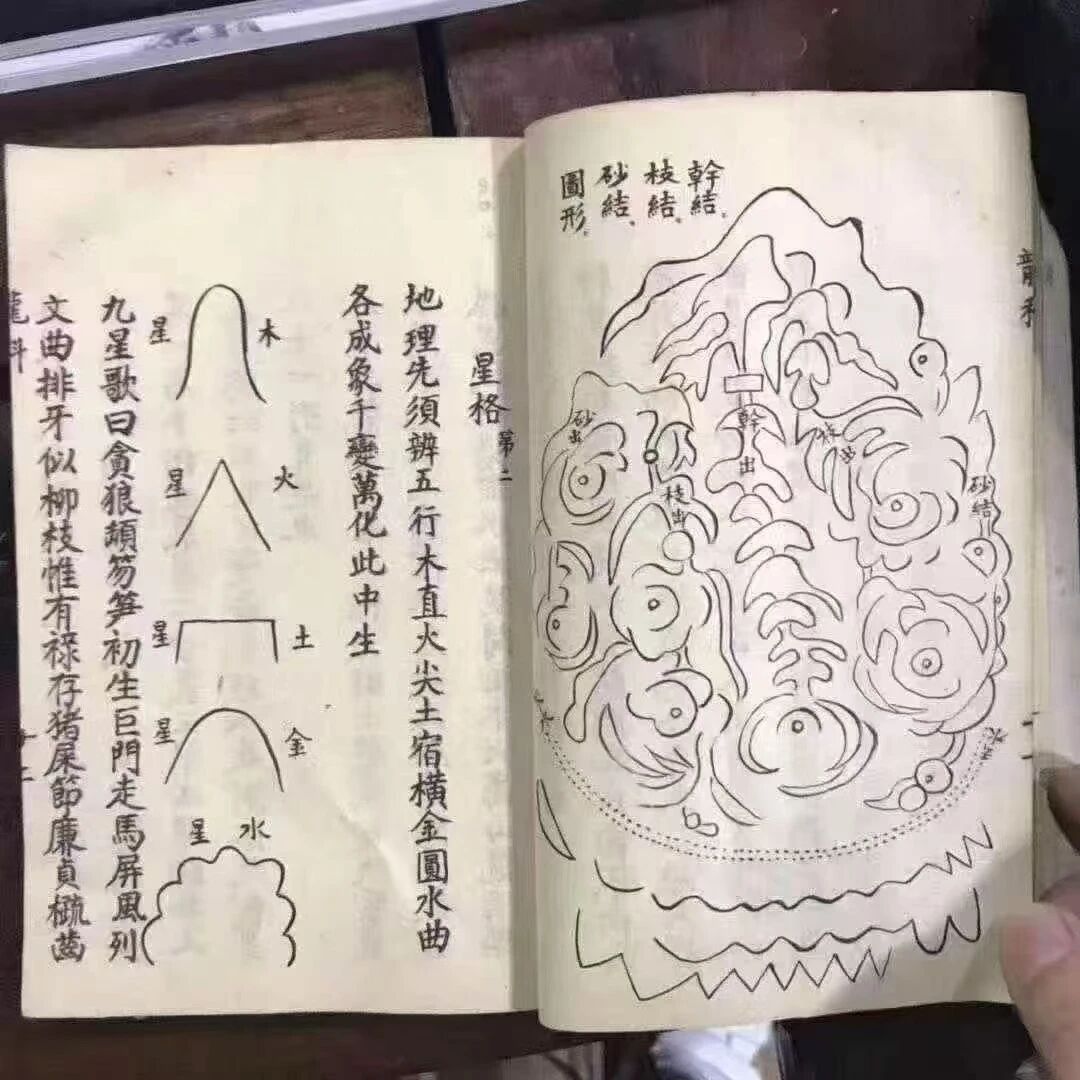 幹結。
枝結。
砂結。
圖形。
幹出
枝出
砂出
砂結
星格
第二
地理先須辨五行木直火尖土宿橫金圓水曲
各成象千變萬化此中生
木星
火星
土星
金星
水星
九星歌曰貪狼頓笏笋初生巨門走馬屏風列
文曲排牙似柳枝惟有祿存猪屎節廉貞梳齒